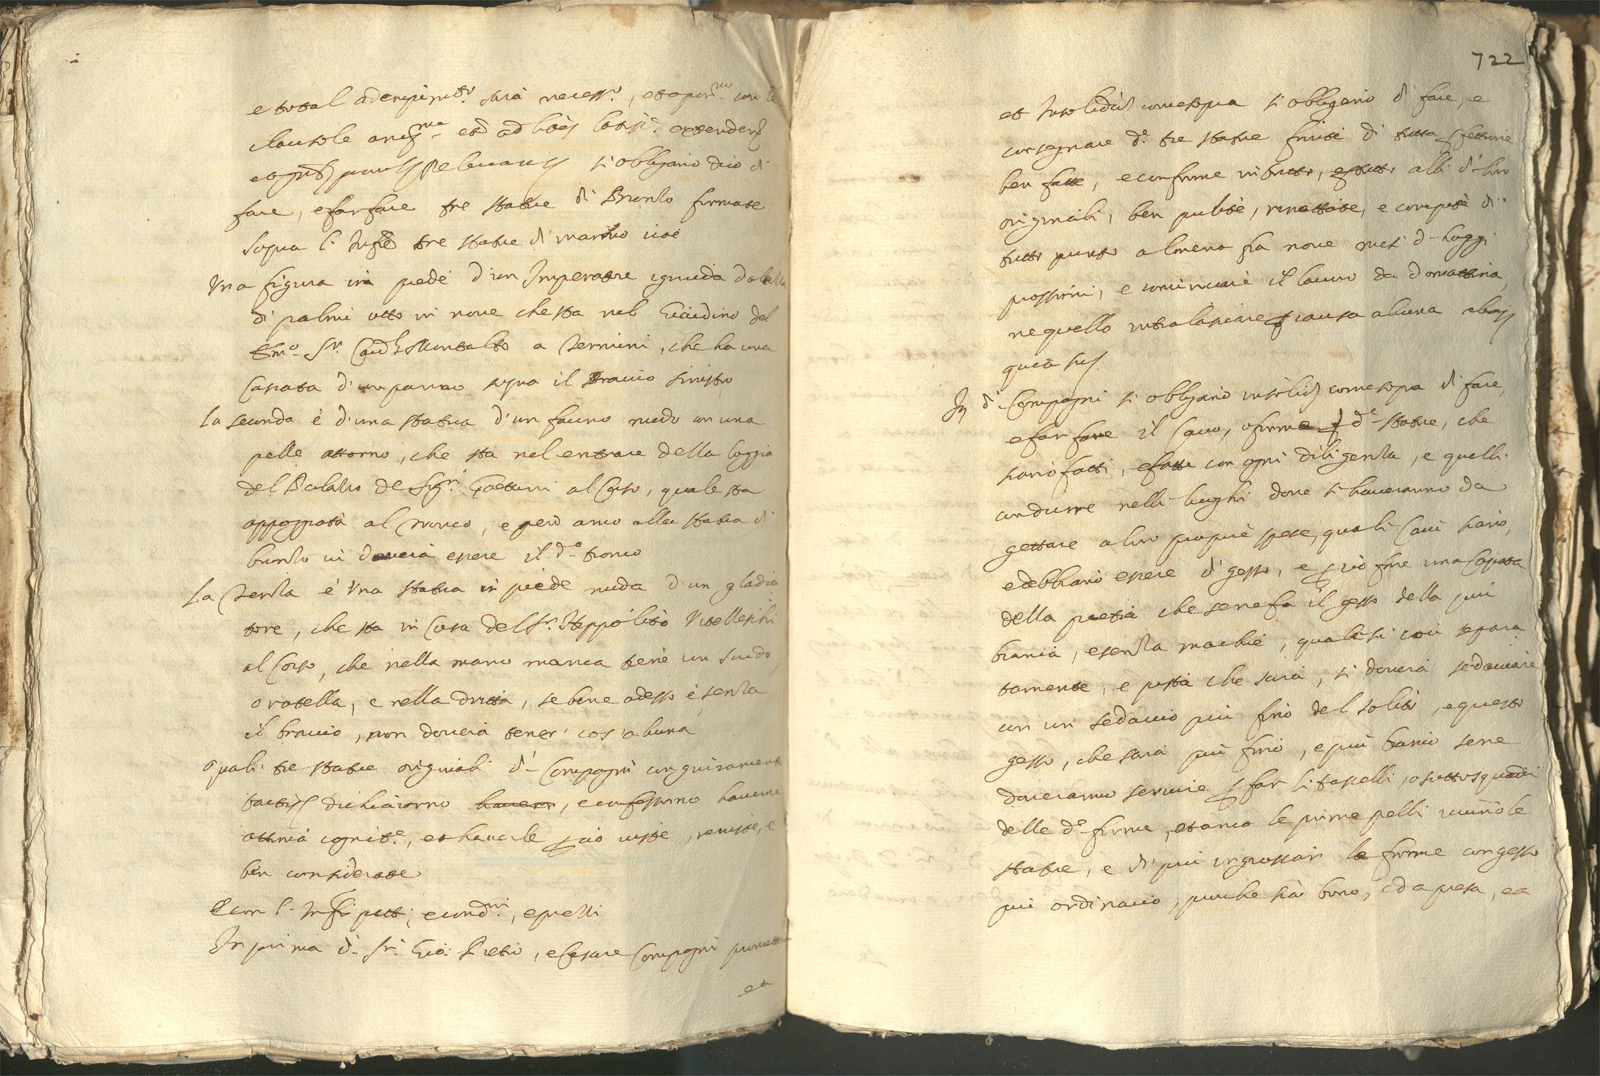 e total adempimto. sarà necessro., et apponno. con le
clausole
si obligano dico di
fare, e far fare tre statue di Bronzo formate
sopra l'infre tre statue di marmo cioè
Una figura in piedi d'un Imperatore ignuda
di palmi otto in nove che sta nel Giardino del
Emo. Sr. Cardle Montalto a Termini, che ha una
Cascata d'un panno sopra il Braccio sinistro
La seconda è d'una statua d'un fauno nudo con una
pelle attorno, che sta nel entrare della loggia
del Palazzo de Sigri. Gaetani al Corso, quale sta
appoggiata al tronco, e però anco alla statua di
bronzo vi doverà essere il do. tronco
La Terza è Una statua in piede nuda d'un gladia
tore, che sta in Casa del Sr. Hippolito Vitelleschi
al Corso, che nella mano manca tiene un scudo,
o rotella, e nella dritta, se bene adesso è senza
il braccio, non doverà tener' cos'alcuna
Quali tre statue originali di Compagni con giuramento
tactis dichiarorno haver, e confessorno haverne
ottima cognite., et haverle p ciò viste, reviste, e
ben considerate
E con l'infri patti, e condni., e quelli
In prima di Sri. Gio: Pietro, e Cesare Compagni promettono
et
722
et insolidum come sopra si obligano di fare, e
consegnare de. tre statue finite di tutta pfettione
ben fatte, e conforme in tutto, e p tutto alli di loro
originali, ben pulite, rinettate, e compite di
tutto punto almeno fra nove mesi d'hoggi
prossimi, e cominciare il lavoro da domattina,
ne quello intralasciare p causa alcuna
quia sic
It di Compagni si obligano insolidum come sopra di fare,
e far fare il Cavo, o forme p de. statue, che
siano fatti, e fatte con ogni diligenza, e quelli
condurre nelli luoghi dove si haveranno da
gettare a loro proprie spese, quali Cavi siano,
e debbiano essere di gesso, e p ciò fare una Capata
della pietra che se ne fa il gesso della più
bianca, e senza machie, quale si coci separa
tamente, e pista che sarà, si doverà sedacciare
con un sedaccio più fino del solito, e questo
gesso, che sarà più fino, e più bianco se ne
doveranno servire p far li tasselli, o sottosquadri
delle de. forme, et anco le prime pelli vicino le
statue, e di poi ingrossar le forme con gesso
più ordinario, purche sia buono, e da presa, ea